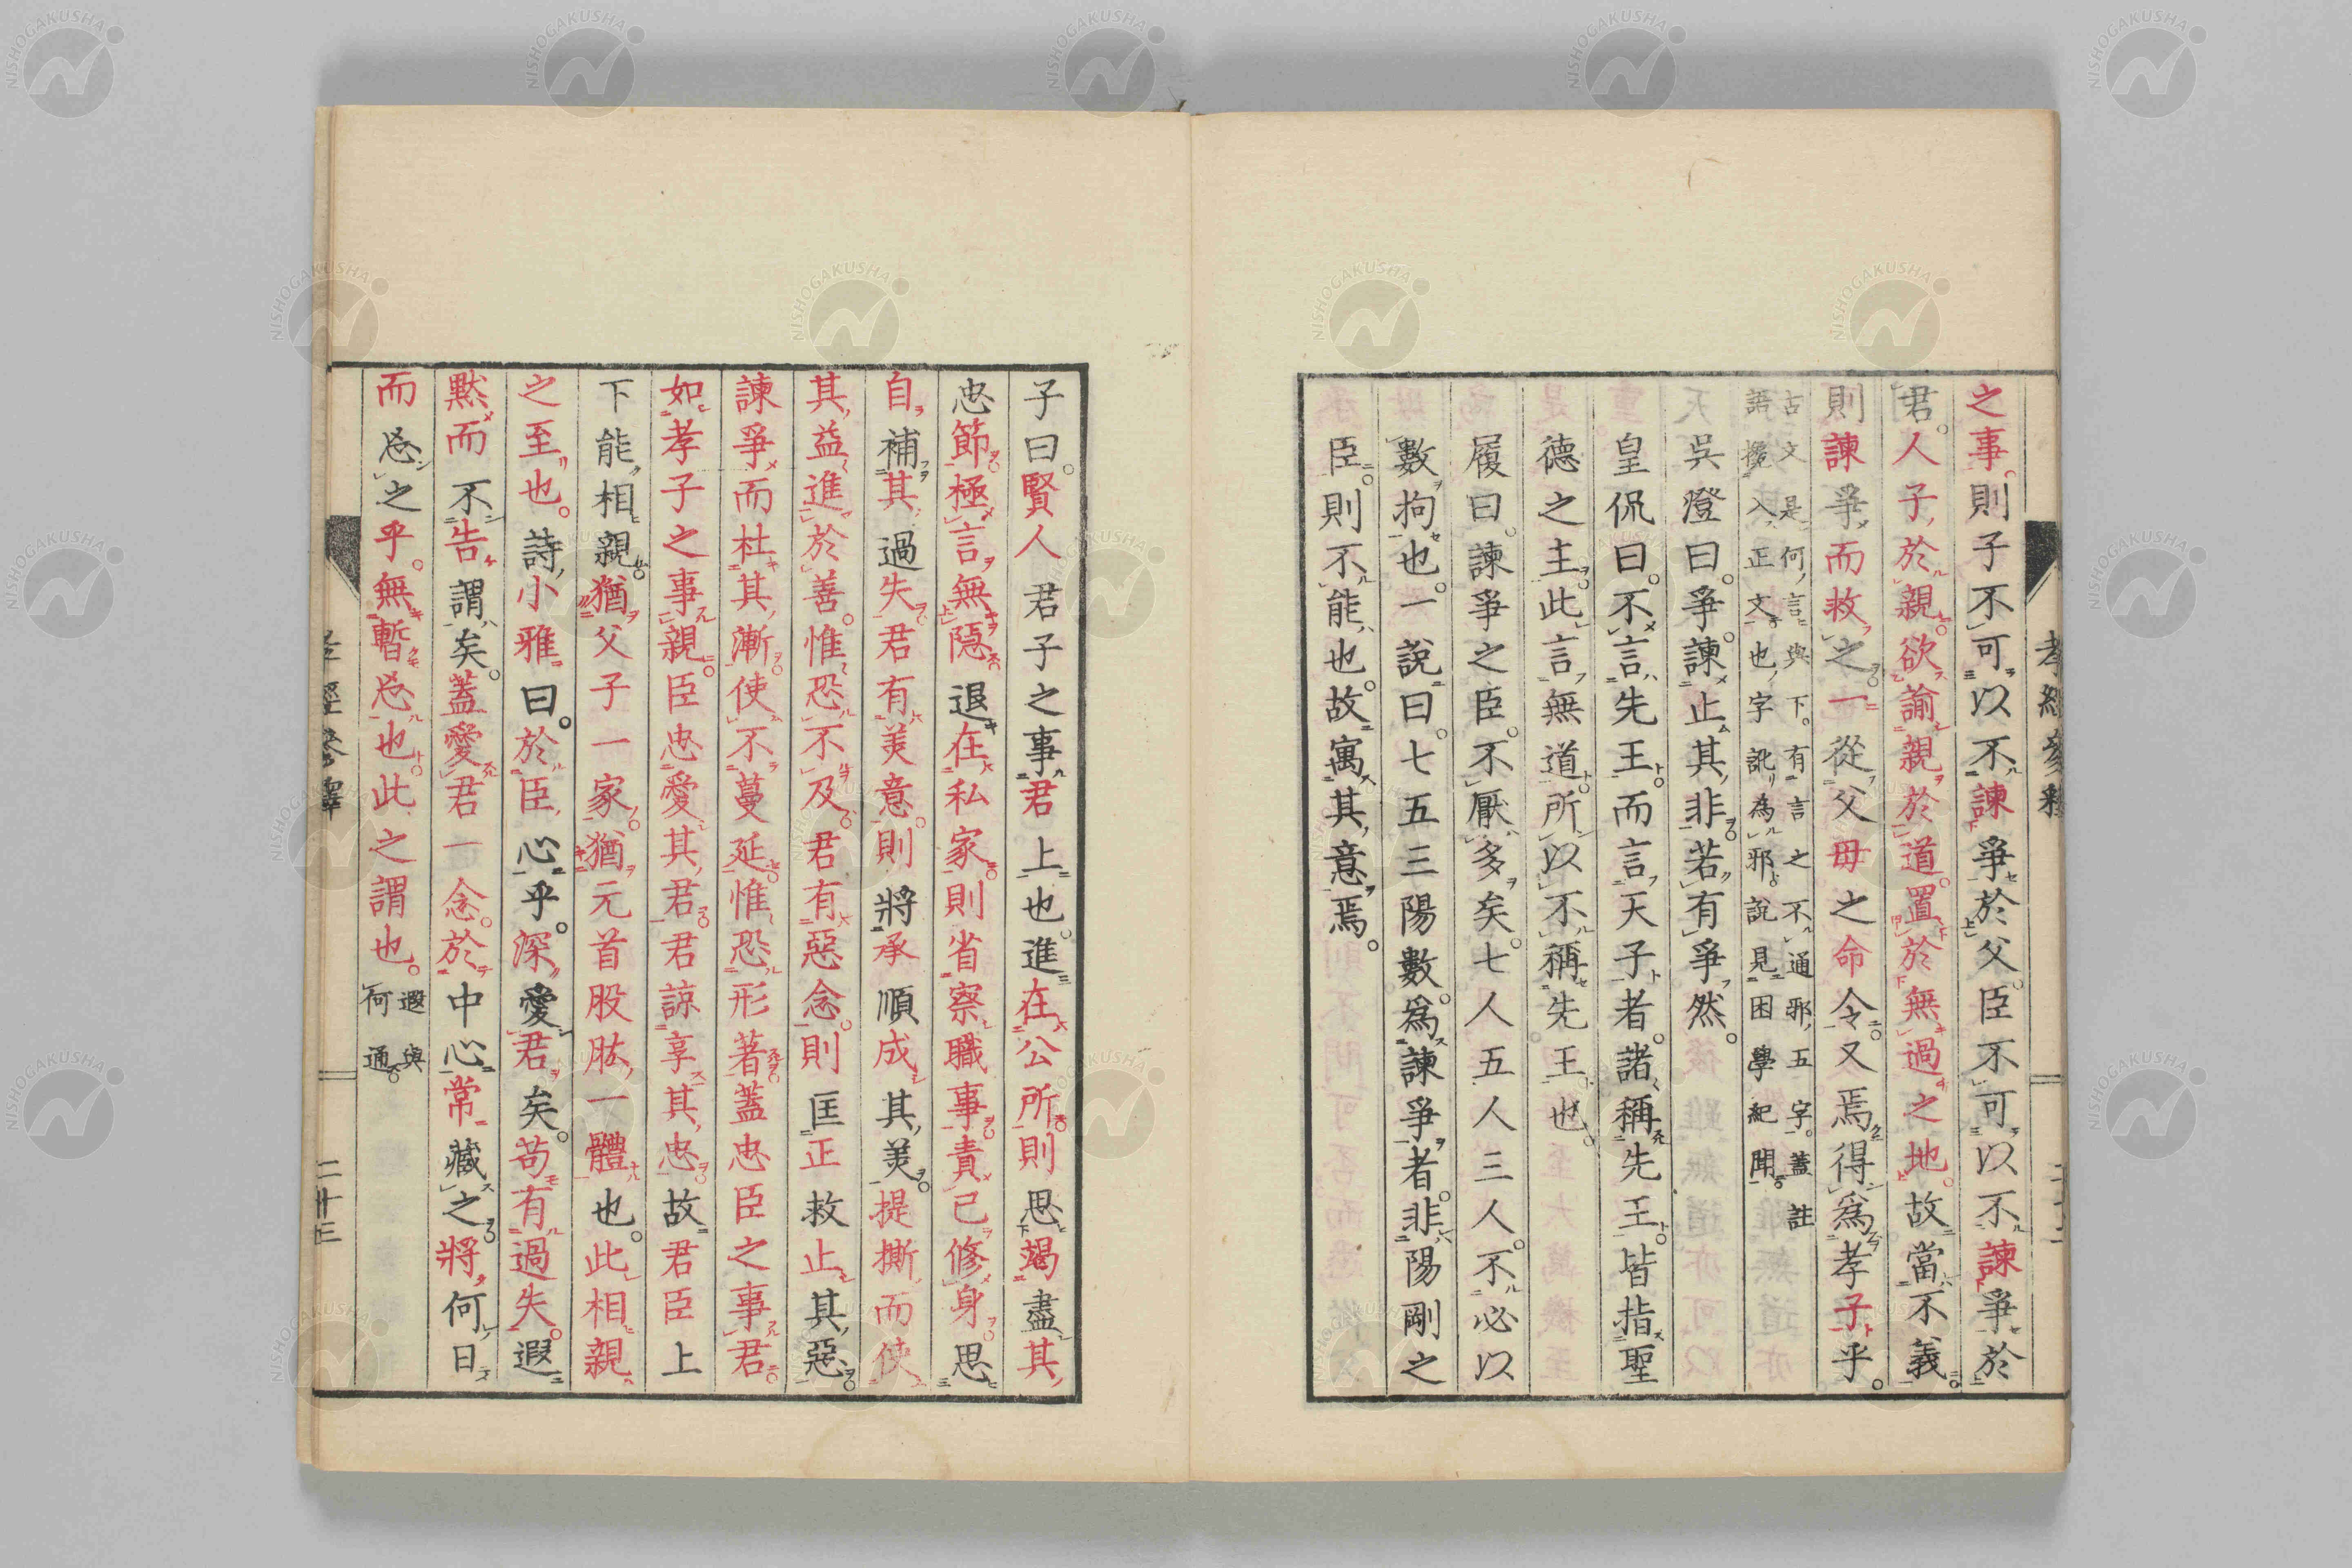 之事。則子不可以不諫爭於父。臣不可以不諫爭於
君。人子於親欲諭親於道。置於無過之地。故當不義
則諫爭而救之。一從父母之命令。又焉得爲孝子乎。
古文是何言與下。有言之不通邪五字。蓋註
語攙入正文也。字訛爲邪。說見困學紀聞。
吳澄曰。爭諫止其非。若有爭然。
皇侃曰。不言先王而言天子者。諸稱先王皆指聖
德之主。此言無道。所以不稱先王也。
履曰。諫爭之臣。不厭多矣。七人五人三人。不必以
數拘也。一說曰。七五三陽數。爲諫爭者。非陽剛之
臣。則不能也。故寓其意焉。
孝經參釋
子曰。賢人君子之事君上也。進在公所則思竭盡其
忠節極言無隱退在私家則省察職事責己修身思
自補其過失。君有美意。則將承順成其美。提撕而使
其益進於善。惟恐不及。君有惡念。則匡正救止其惡。
諫爭而杜其漸。使不蔓延。惟恐形著蓋忠臣之事君。
如孝子之事親。臣忠愛其君。君諒享其忠。故君臣上
下能相親。猶父子一家。猶元首股肱一體也。此相親
之至也。詩小雅曰。於臣心乎。深愛君矣。苟有過失。遐
黙而不告謂矣。蓋愛君一念。於中心常藏之。將何日
而忘之乎。無暫忘也。此之謂也。遐與
何通。
孝經參釋
二十三
NISHOGAKUSHA